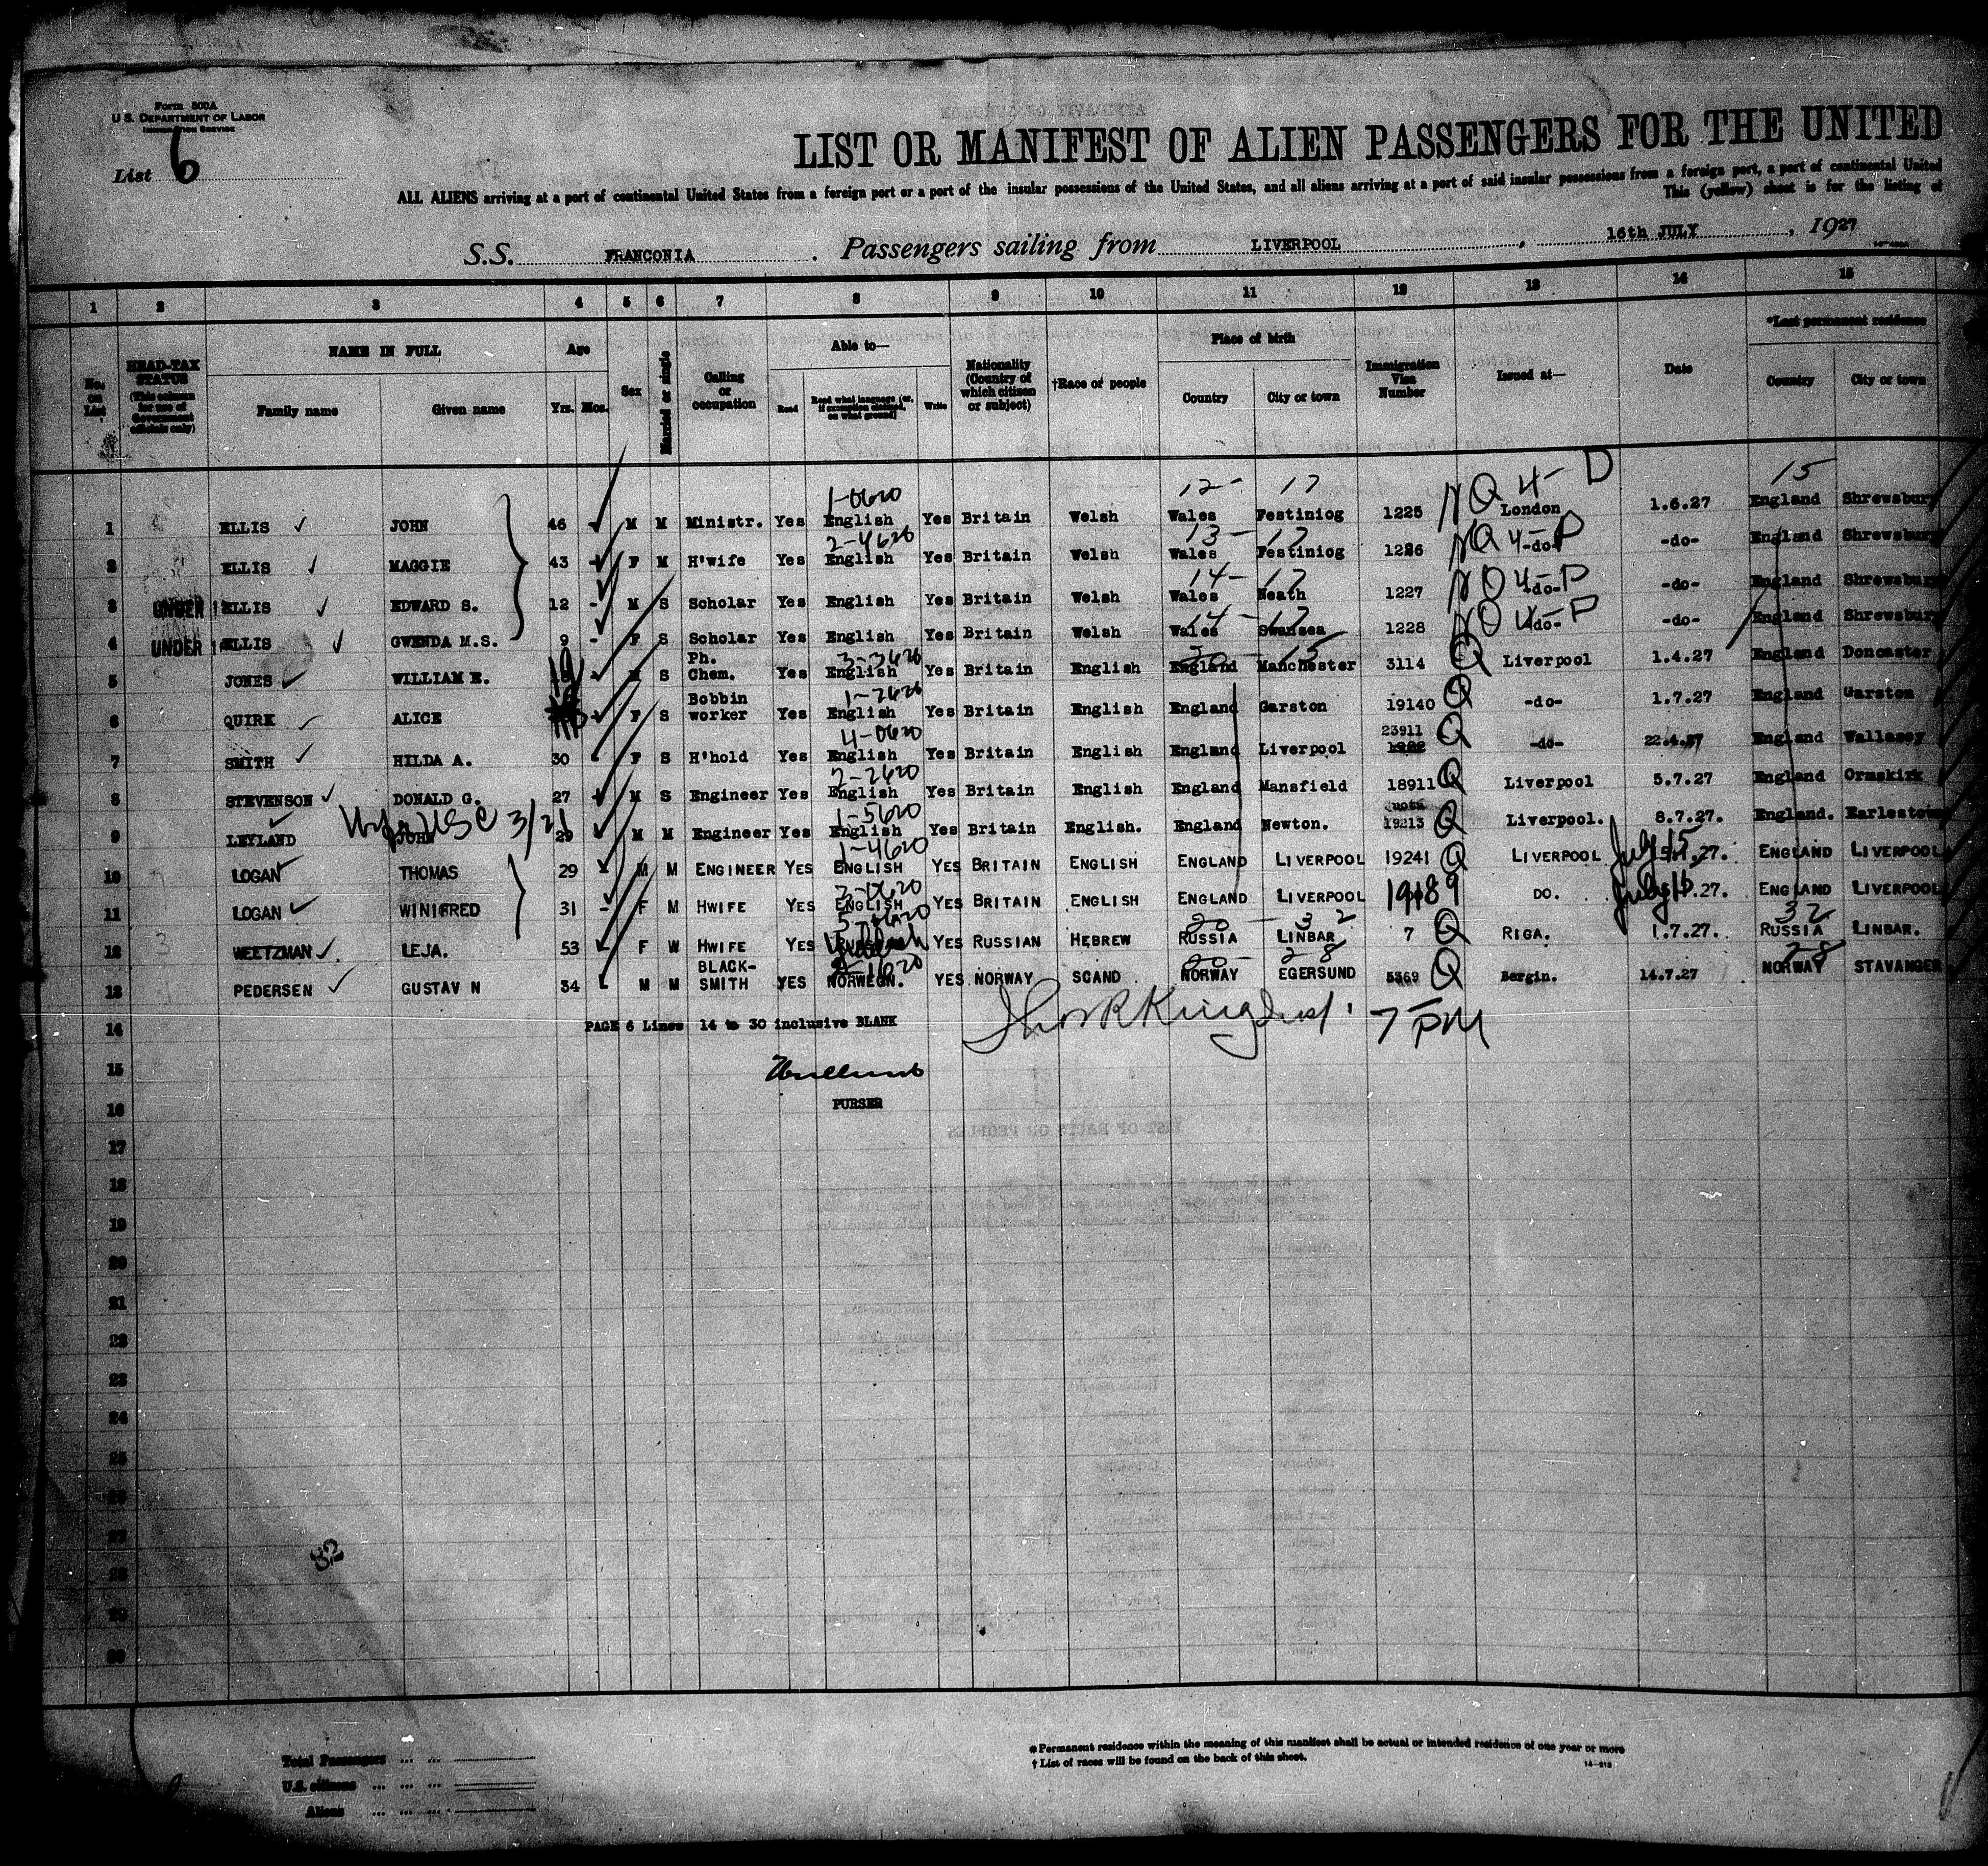 Form 500A
U.S. DEPARTMENT OF LABOR
IMMIGRATION SERVICE
List 6
LIST OR MANIFEST OF ALIEN PASSENGERS FOR THE UNITED
ALL ALIENS arriving at a port of continental United States from a foreign port or a port of the insular possessions of the United States, and all aliens arriving at a port of said insular possessions from a foreign port, a port of continental United
This (yellow) sheet is for the listing of
S.S. FRANCONIA. Passengers sailing from LIVERPOOL, 16th JULY, 1927
1 2 3 4 5 6 7 8 9 10 11 12 13 14 15
No. on List
HEAD-TAX STATUS (This column for use of Government officials only)
NAME IN FULL
Family name
Given name
Age
Yrs. Mos.
Sex
Married or single
Calling or occupation
Able to—
Read
Read what language (or, if exemption claimed, on what ground)
Write
Nationality (Country of which citizen or subject)
†Race or people
Place of birth
Country
City or town
Immigration Visa Number
Issued at—
Date
*Last permanent residence
Country
City or town
1-0620 12- 17 NQ 4- D 15
1 ELLIS JOHN 46 M M Ministr. Yes English Yes Britain Welsh Wales Festiniog 1225 London 1.6.27 England Shrewsbury
2-4620 13- 17 NQ 4- D
2 ELLIS MAGGIE 43 F M H'wife Yes English Yes Britain Welsh Wales Festiniog 1226 -do- -do- England Shrewsbury
14- 17
3 UNDER 1 ELLIS EDWARD S. 12 - M S Scholar Yes English Yes Britain Welsh Wales Neath 1227 -do- -do- England Shrewsbury
14- 17
4 UNDER 1 ELLIS GWENDA M.S. 9 - F S Scholar Yes English Yes Britain Welsh Wales Swansea 1228 -do- -do- England Shrewsbury
3-3620 20 - 15
5 JONES WILLIAM E. 19 M S Ph. Chem. Yes English Yes Britain English England Manchester 3114 Q Liverpool 1.4.27 England Doncaster
1-2620
6 QUIRK ALICE F S Bobbin worker Yes English Yes Britain English England Garston 19140 Q -do- 1.7.27 England Garston
4-0620 23911
7 SMITH HILDA A. 30 F S H'hold Yes English Yes Britain English England Liverpool Q -do- 22.4.27 England Wallasey
2-2620
8 STEVENSON DONALD G. 27 M S Engineer Yes English Yes Britain English England Mansfield 18911 Q Liverpool 5.7.27 England Ormskirk
USC 3/21 1-5620 quota
9 LEYLAND JOHN 29 M M Engineer Yes English Yes Britain English. England Newton. 19213 Q Liverpool. 8.7.27. England. Earlestown
1-4620 July 15
10 LOGAN THOMAS 29 M M ENGINEER YES ENGLISH YES BRITAIN ENGLISH ENGLAND LIVERPOOL 19241 Q LIVERPOOL .27. ENGLAND LIVERPOOL
July 16
11 LOGAN WINIFRED 31 - F M HWIFE YES ENGLISH YES BRITAIN ENGLISH ENGLAND LIVERPOOL 19189 DO. .27. ENGLAND LIVERPOOL
20 - 32 32
12 WEETZMAN LEJA. 53 F W HWIFE YES Yiddish YES RUSSIAN HEBREW RUSSIA LINBAR 7 Q RIGA. 1.7.27. RUSSIA LINBAR.
20- 28 28
13 PEDERSEN GUSTAV N 34 M M BLACK-SMITH YES NORWEGN. YES NORWAY SCAND NORWAY EGERSUND 5369 Q Bergin. 14.7.27 NORWAY STAVANGER
14 PAGE 6 Lines 14 to 30 inclusive BLANK
7 PM
15
16 PURSER
17
18
19
20
21
22
23
24
25
26
27
28
29
30
82
Total Passengers ... ...
U.S. citizens ... ... ...
Aliens ... ... ...
* Permanent residence within the meaning of this manifest shall be actual or intended residence of one year or more
† List of races will be found on the back of this sheet.